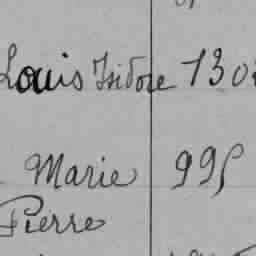 Louis Isidore 130
Marie 995
Pierre